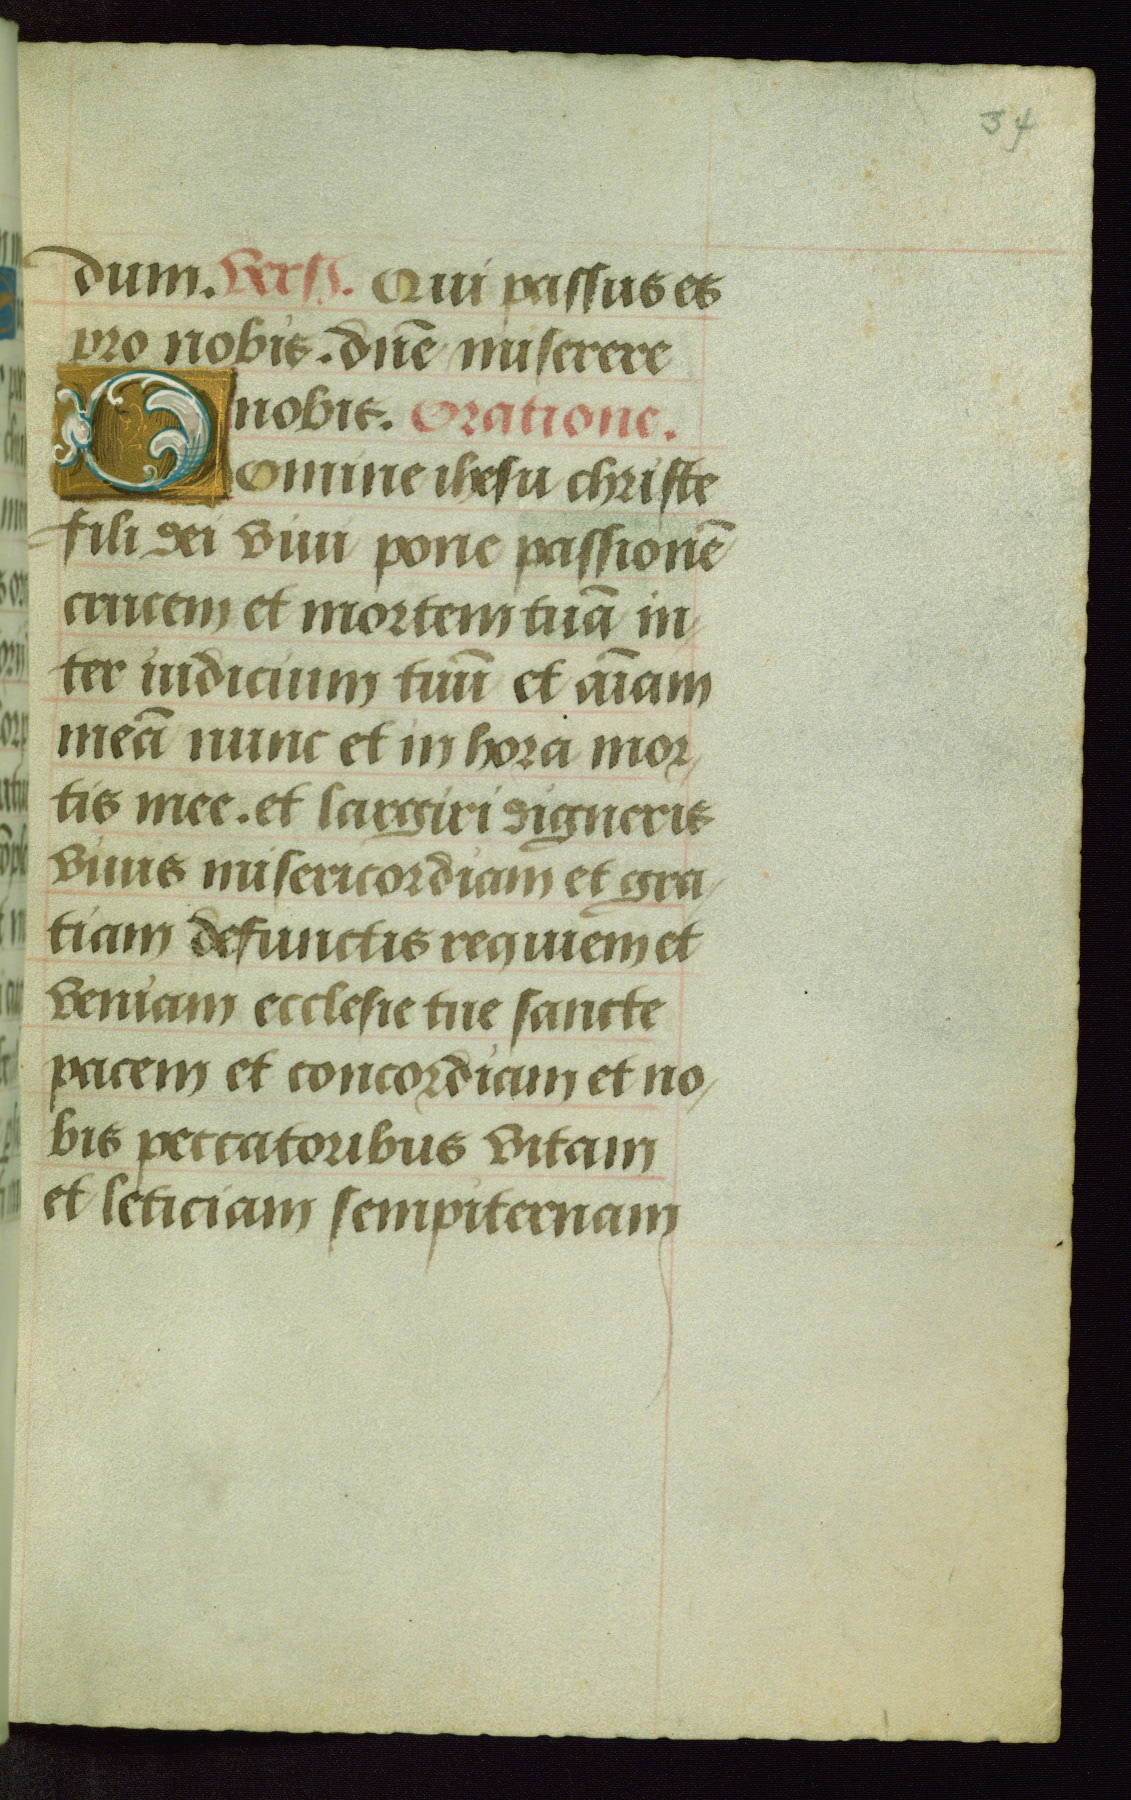 34
dum. Vers. Qui passus es
pro nobis. dn̄e miserere
nobis. Oratione.
Domine ihesu christe
fili dei viui pone passionē
crucem et mortem tuā in
ter iudicium tuū et aīam
meā nunc et in hora mor
tis mee. et largiri digneris
viuis misericordiam et gra
tiam defunctis requiem et
veniam ecclesie tue sancte
pacem et concordiam et no
bis peccatoribus vitam
et leticiam sempiternam